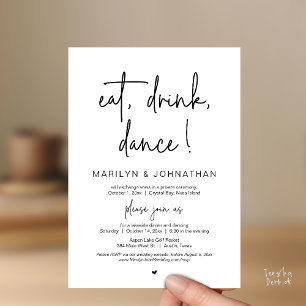 eat, drink,
dance!
MARILYN & JOHNATHAN
will exchange vows in a private ceremony.
October 1, 20xx | Crystal Bay, Nusa Island
please join us
for a lakeside dinner and dancing.
Saturday | October 14, 20xx | 6:30 in the evening
Aspen Lake Golf Resort
384 Main West St. | Austin, Texas
Please RSVP via our wedding website, before August 5, 20xx